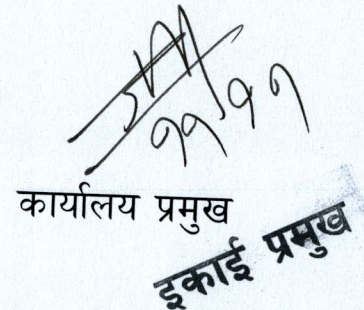 ११/११
कार्यालय प्रमुख
इकाई प्रमुख